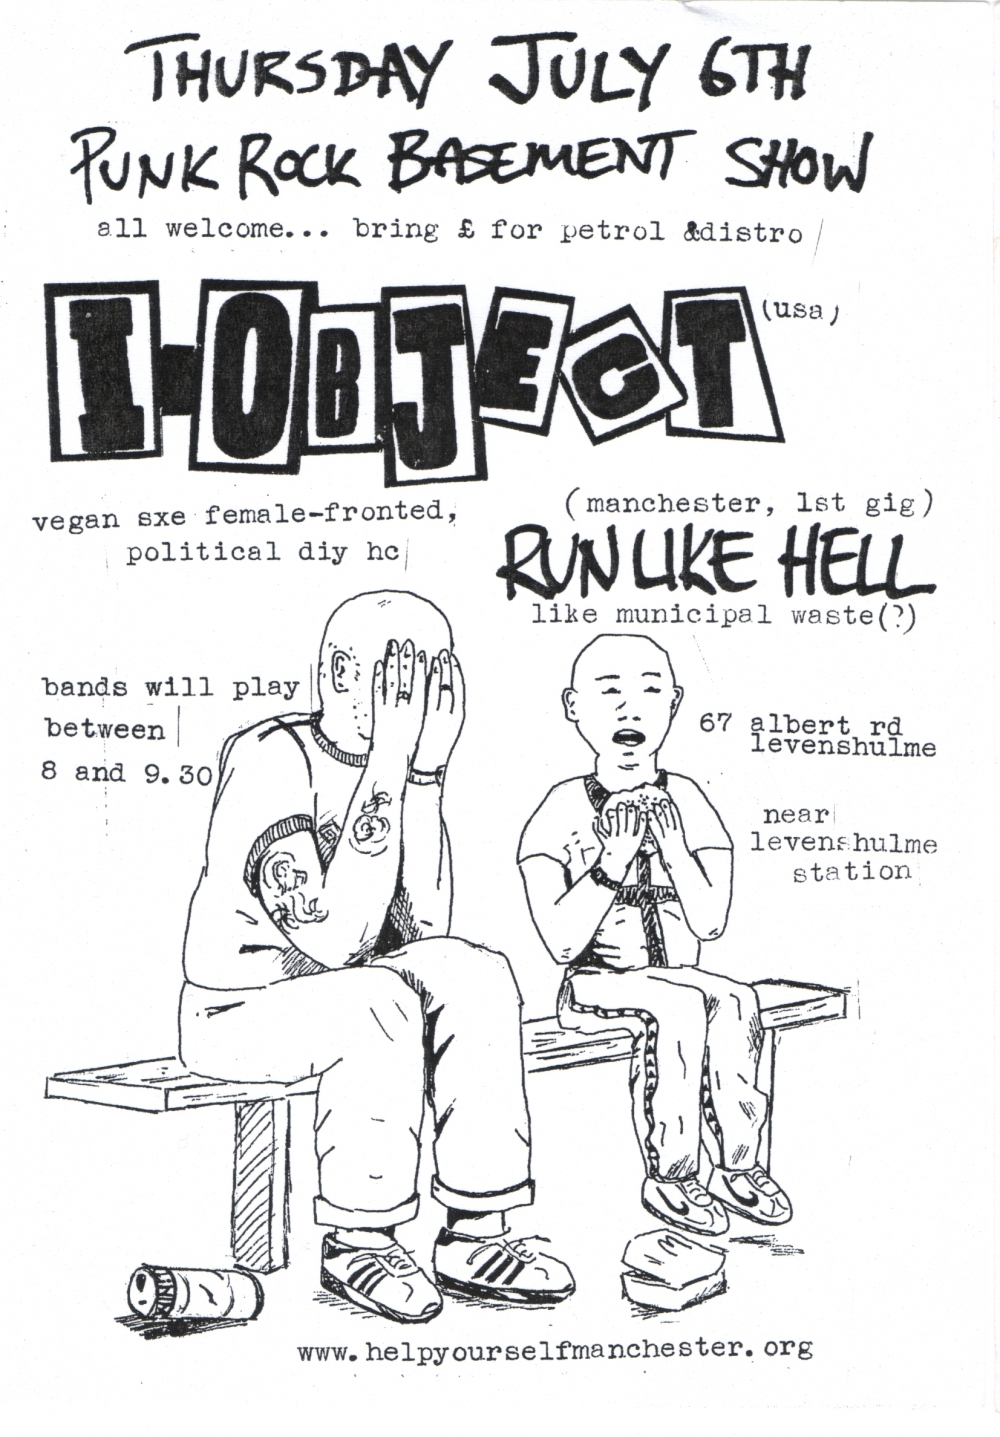 THURSDAY JULY 6TH
PUNK ROCK BASEMENT SHOW
all welcome... bring £ for petrol &distro
I-OBJECT
(usa)
vegan sxe female-fronted,
political diy hc
(manchester, 1st gig)
RUN LIKE HELL
like municipal waste(?)
bands will play
between
8 and 9.30
67 albert rd
levenshulme
near
levenshulme
station
www.helpyourselfmanchester.org